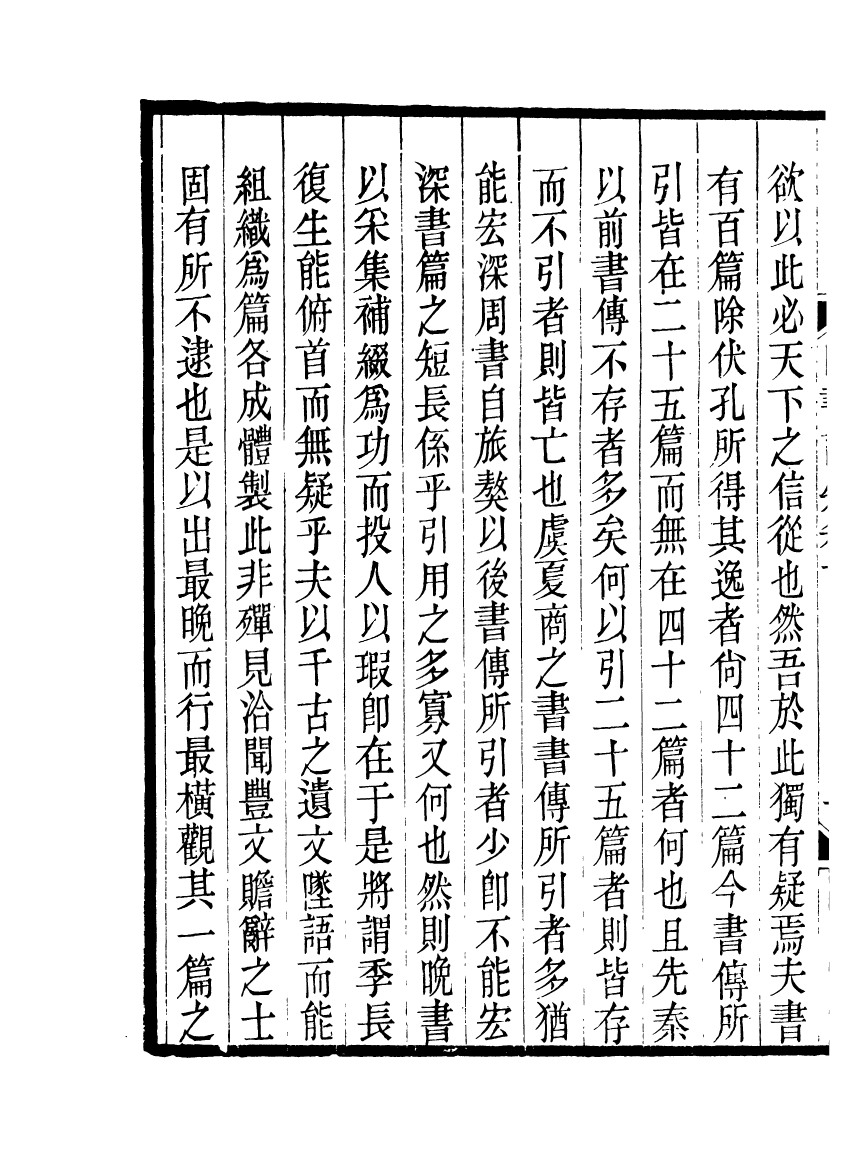 欲以此必天下之信從也然吾於此獨有疑焉夫書
有百篇除伏孔所得其逸者尙四十二篇今書傳所
引皆在二十五篇而無在四十二篇者何也且先秦
以前書傳不存者多矣何以引二十五篇者則皆存
而不引者則皆亡也虞夏商之書書傳所引者多猶
能宏深周書自旅獒以後書傳所引者少卽不能宏
深書篇之短長係乎引用之多寡又何也然則晚書
以采集補綴爲功而投人以瑕卽在于是將謂季長
復生能俯首而無疑乎夫以千古之遺文墜語而能
組織爲篇各成體製此非殫見洽聞豐文贍辭之士
固有所不逮也是以出最晚而行最橫觀其一篇之